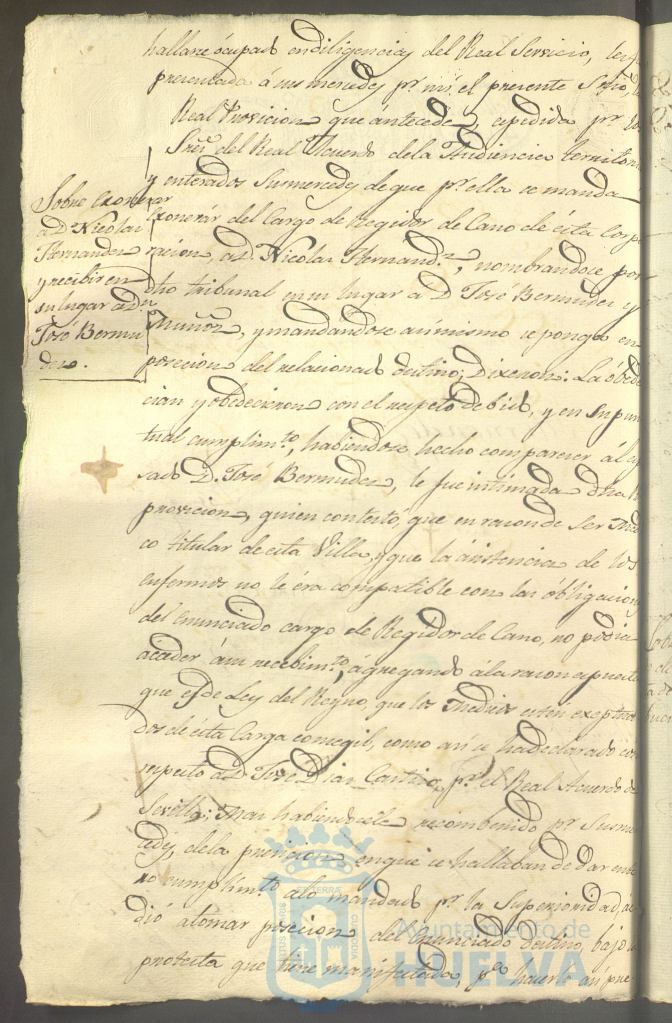 hallarse ócupado en diligencias del Real Servicio,
presentada á sus mercedes pr. mi el presente Srio,
Real Provicion que ántecede, expedida pr. los
Sres. del Real Acuerdo dela Audiencia territorial
y enterados Sus mercedes de que pr. ella se manda
exonerár del Cargo de Regidor de Cano de ésta Corpo
racion, a D. Nicolas Hernandz., nombrandose por
dho tribunal en su lugar a D. José Bermudez y
Muñoz, y mandandose asimismo se ponga en
posecion del relacionado destino; Dixeron: La óbede
cian y obedecieron con el respeto debido, y en su pun
tual cumplimto., habiendose hecho comparecer ál
sado D. José Bermudez, le fue intimada dha
provicion, quien contestó, que en razon de ser Medi
co titular de esta Villa, y que la ásistencia de los
enfermos no le éra compatible con las óbligacion
del enunciado cargo de Regidor de Cano, no podia
áceder á su recebimto., ágregando á la razon expuesta
que es de Ley del Reyno, que los Medicos esten exceptua
dos de ésta Carga consegil, como asi se ha declarado con
respecto a D. José Dias Cantizo, pr. el Real Acuerdo de
Sevilla; Mas habiendosele recombenido pr. Sus mer
cedes, dela precicion en que se hallaban de dar ente
ro cumplimto. alo mandado pr. la Superioridad,
dió a tomar posecion del enunciado destino, bajo la
protesta que tiene manifestada, pa. hacerla
Sobre exonerar
a D. Nicolas
Hernandez
y recibir en
su lugar a Dn.
José Bermu
dez.
Ayuntamiento de
HUELVA